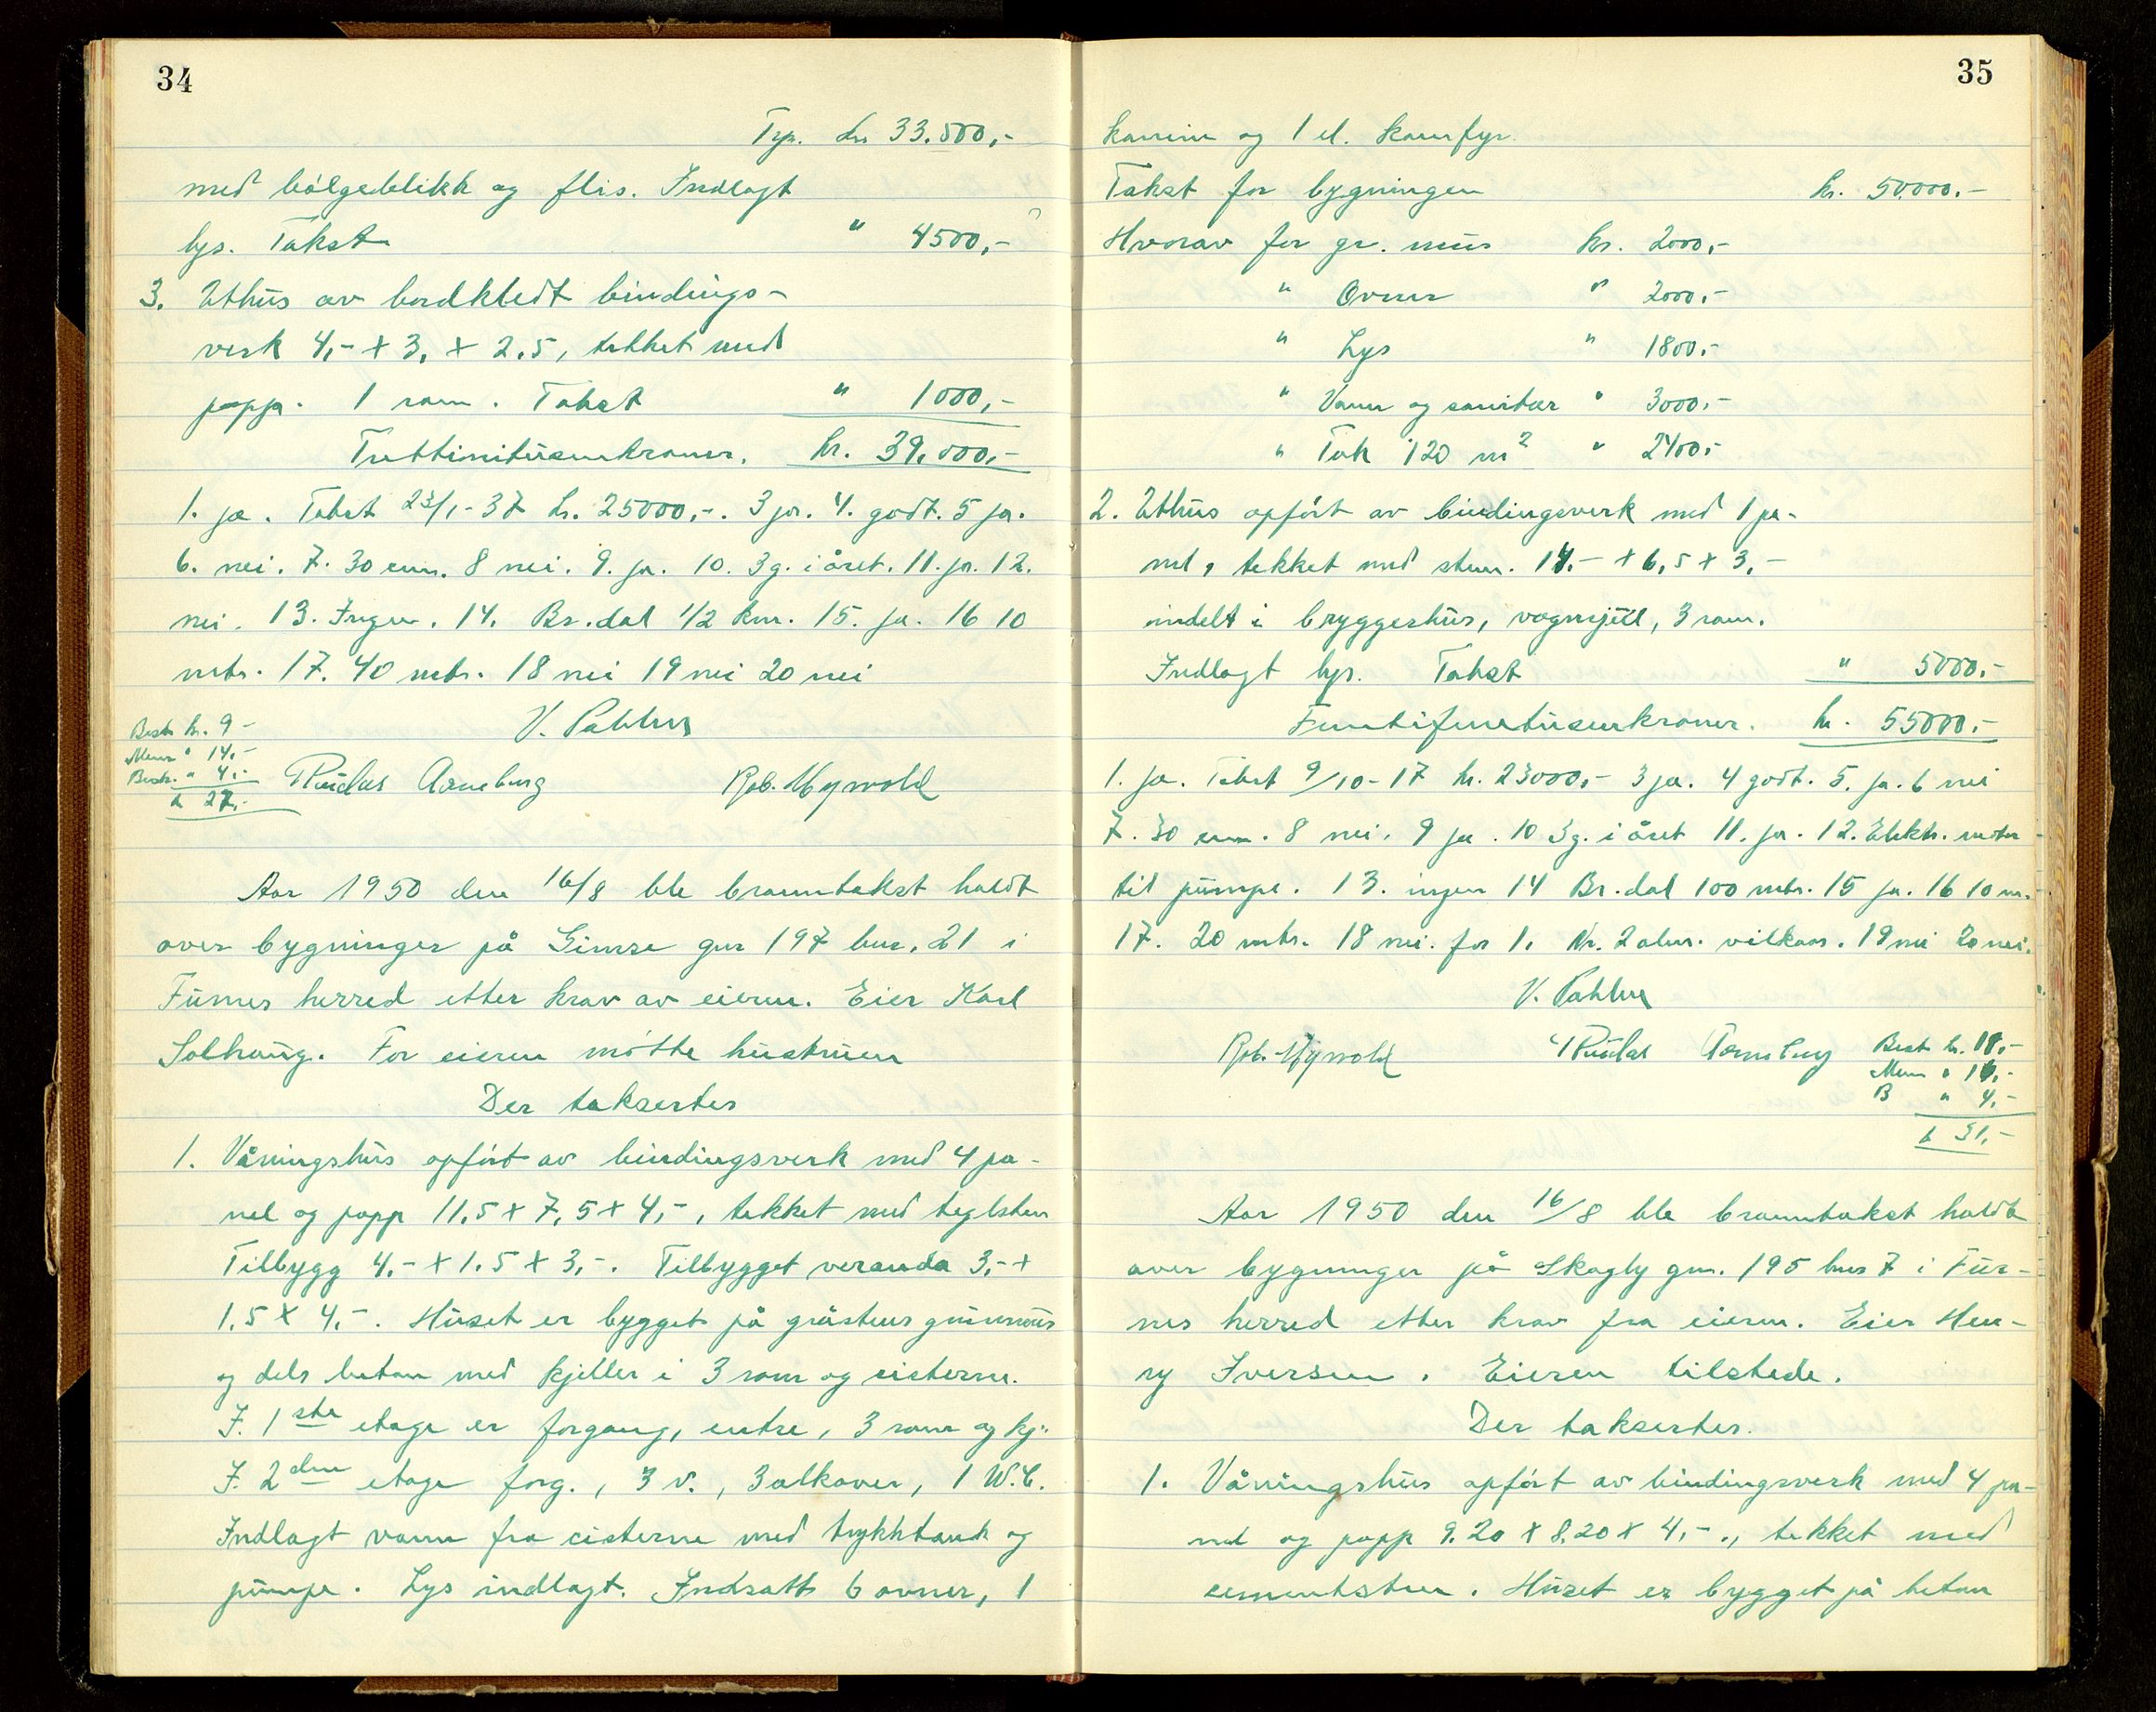 34
Trp. kr 33.500,-
med bølgeblikk og flis. Indlagt
lys. Takst " 4500,-
3. Uthus av bordkledt bindings-
verk 4,- x 3, x 2,5, tekket med
papp. 1 rom. Takst " 1000,-
Trettinitusenkroner. kr. 39.000,-
1. ja. Takst 23/1-37 kr. 25000,-. 3 ja. 4. godt. 5 ja.
6. nei. 7. 30 cm. 8 nei. 9. ja. 10. 3 g. i året. 11. ja. 12.
nei. 13. Ingen. 14. Br.dal 1/2 km. 15. ja. 16 10
mtr. 17. 40 mtr. 18 nei 19 nei 20 nei
V. Pahlm
Best kr. 9-
Menn " 14,-
Bestr. " 4,-
kr 27,-
Rob. Myrvold
Aar 1950 den 16/8 ble branntakst holdt
over bygninger på Gimse gnr 197 bnr. 21 i
Furnes herred etter krav av eieren. Eier Karl
Solhaug. For eieren møtte hustruen
Der taksertes
1. Våningshus opført av bindingsverk med 4 pa-
nel og papp 11,5 x 7,5 x 4,-, tekket med teglsten
Tilbygg 4,- x 1.5 x 3,-. Tilbygget veranda 3,- x
1,5 x 4,-. Huset er bygget på gråstens grunnmur
og dels beton med kjeller i 3 rom og cisterne.
I. 1ste etage er forgang, entre, 3 rom og kj.
I. 2den etage forg., 3 v., 3 alkover, 1 W.C.
Indlagt vann fra cisterne med trykktank og
pumpe. Lys indlagt. Indsatt 6 ovner, 1
35
kamin og 1 el. komfyr.
Takst for bygningen kr. 50.000.-
Hvorav for gr. mur kr. 2000,-
" Ovner " 2000,-
" Lys " 1800,-
" Vann og sanitær " 3000,-
" Tak 120 m2 " 2400,-
2. Uthus opført av bindingsverk med 1 pa-
nel, tekket med sten. 14,- x 6,5 x 3,-
inndelt i bryggerhus, vognsjul, 3 rom.
Indlagt lys. Takst " 5000,-
Femtifemtusenkroner. kr. 55000,-
1. ja. Takst 9/10-17 kr. 23000,- 3 ja. 4 godt. 5. ja. 6 nei
7. 30 cm. 8 nei. 9 ja. 10 3g. i året 11. ja. 12. Elektr. motor
til pumpe. 13. ingen 14 Br.dal 100 mtr. 15 ja. 16 10 m.
17. 20 mtr. 18 nei. for 1. Nr. 2 alm. vilkaar. 19 nei 20 nei.
V. Pahlm
Rob. Myrvold
Menn "
B " 4,-
kr 31,-
Aar 1950 den 16/8 ble branntakst holdt
over bygninger på Skogly gnr. 195 bnr 7 i Fur-
nes herred etter krav fra eieren. Eier Hen-
ry Iversen. Eieren tilstede.
Der taksertes.
1. Våningshus opført av bindingsverk med 4 pa-
nel og papp 9.20 x 8.20 x 4,-., tekket med
cementsten. Huset er bygget på beton